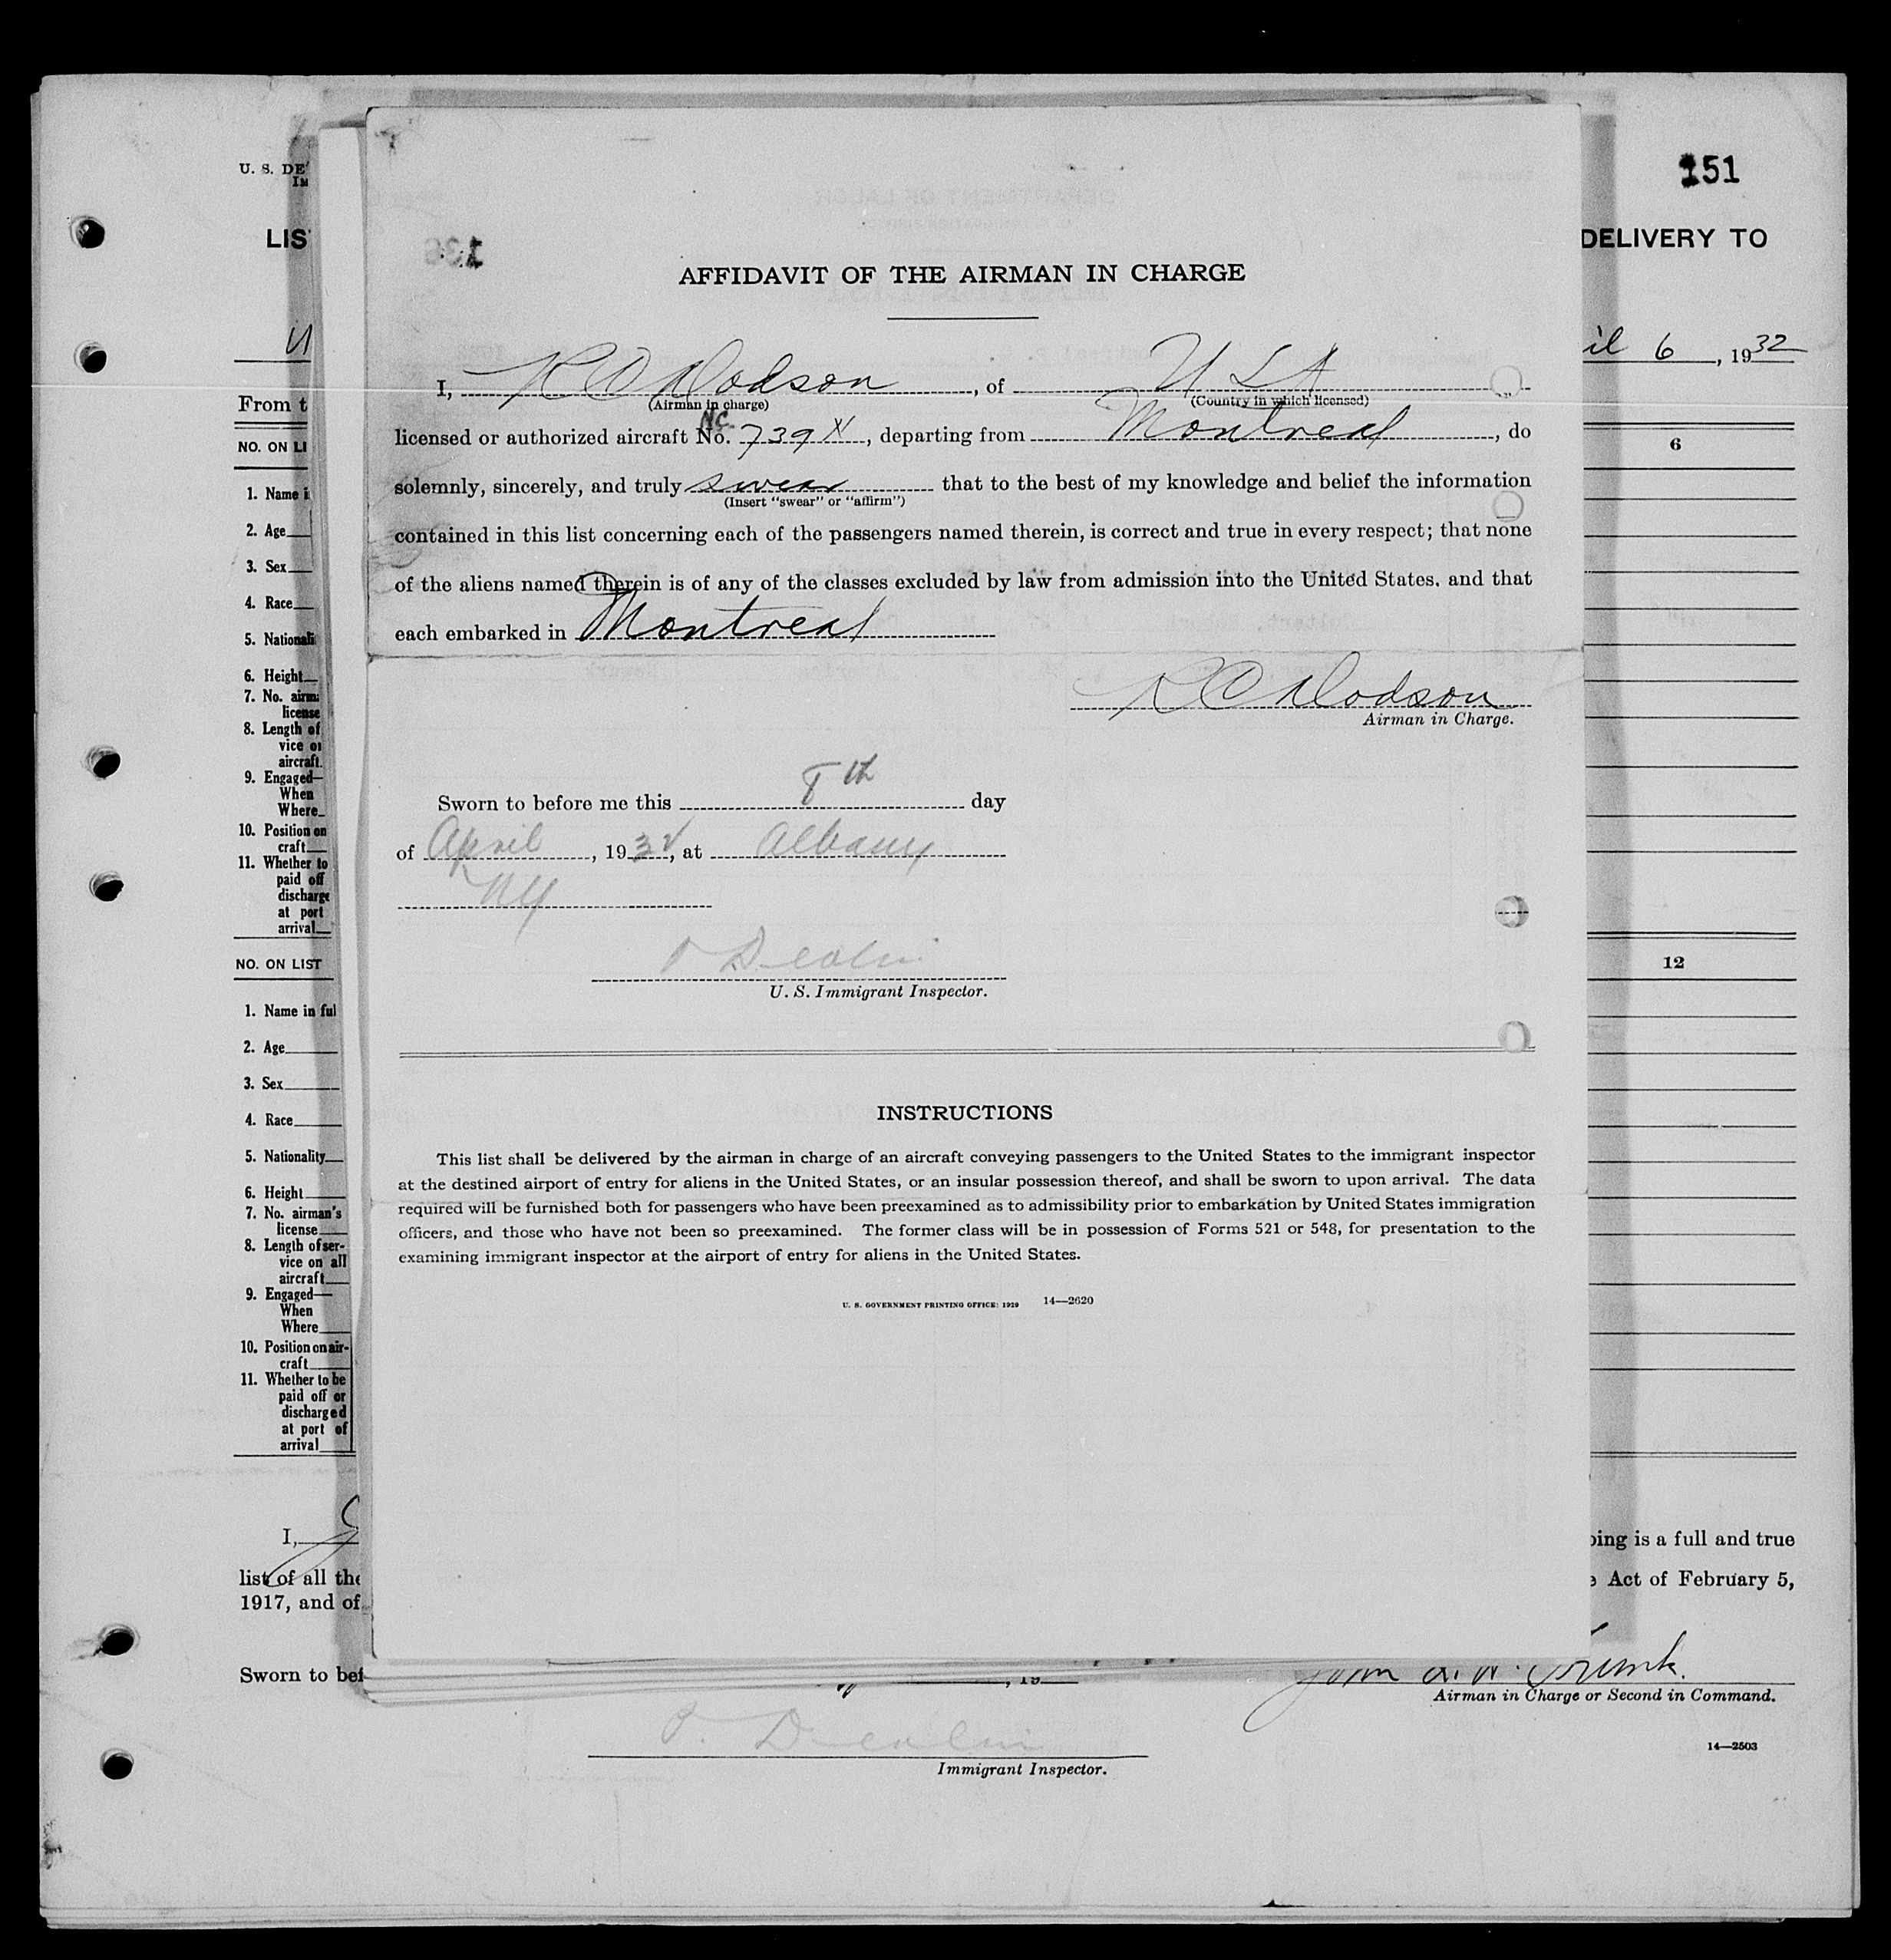 U. S. DE
IM
151
LIS
DELIVERY TO
AFFIDAVIT OF THE AIRMAN IN CHARGE
il 6, 1932
I, R O Dodson, of USA
(Airman in charge) (Country in which licensed)
From t
NC.
licensed or authorized aircraft No. 739 X, departing from Montreal, do
NO. ON LI
6
solemnly, sincerely, and truly swear that to the best of my knowledge and belief the information
(Insert "swear" or "affirm")
contained in this list concerning each of the passengers named therein, is correct and true in every respect; that none
of the aliens named therein is of any of the classes excluded by law from admission into the United States, and that
each embarked in Montreal
R O Dodson
Airman in Charge.
Sworn to before me this 8th day
of April, 1932, at Albany
NY
U. S. Immigrant Inspector.
INSTRUCTIONS
This list shall be delivered by the airman in charge of an aircraft conveying passengers to the United States to the immigrant inspector
at the destined airport of entry for aliens in the United States, or an insular possession thereof, and shall be sworn to upon arrival. The data
required will be furnished both for passengers who have been preexamined as to admissibility prior to embarkation by United States immigration
officers, and those who have not been so preexamined. The former class will be in possession of Forms 521 or 548, for presentation to the
examining immigrant inspector at the airport of entry for aliens in the United States.
U. S. GOVERNMENT PRINTING OFFICE: 1929 14—2620
1. Name i
2. Age
3. Sex
4. Race
5. Nationali
6. Height
7. No. airma
license
8. Length of
vice on
aircraft.
9. Engaged—
When
Where
10. Position on
craft
11. Whether to
paid off
discharge
at port
arrival
NO. ON LIST
12
1. Name in ful
2. Age
3. Sex
4. Race
5. Nationality
6. Height
7. No. airman's
license
8. Length of ser-
vice on all
aircraft
9. Engaged—
When
Where
10. Position on air-
craft
11. Whether to be
paid off or
discharged
at port of
arrival
I,
oing is a full and true
list of all the
e Act of February 5,
1917, and of
Sworn to bef
, 19
Airman in Charge or Second in Command.
Immigrant Inspector.
14—2503